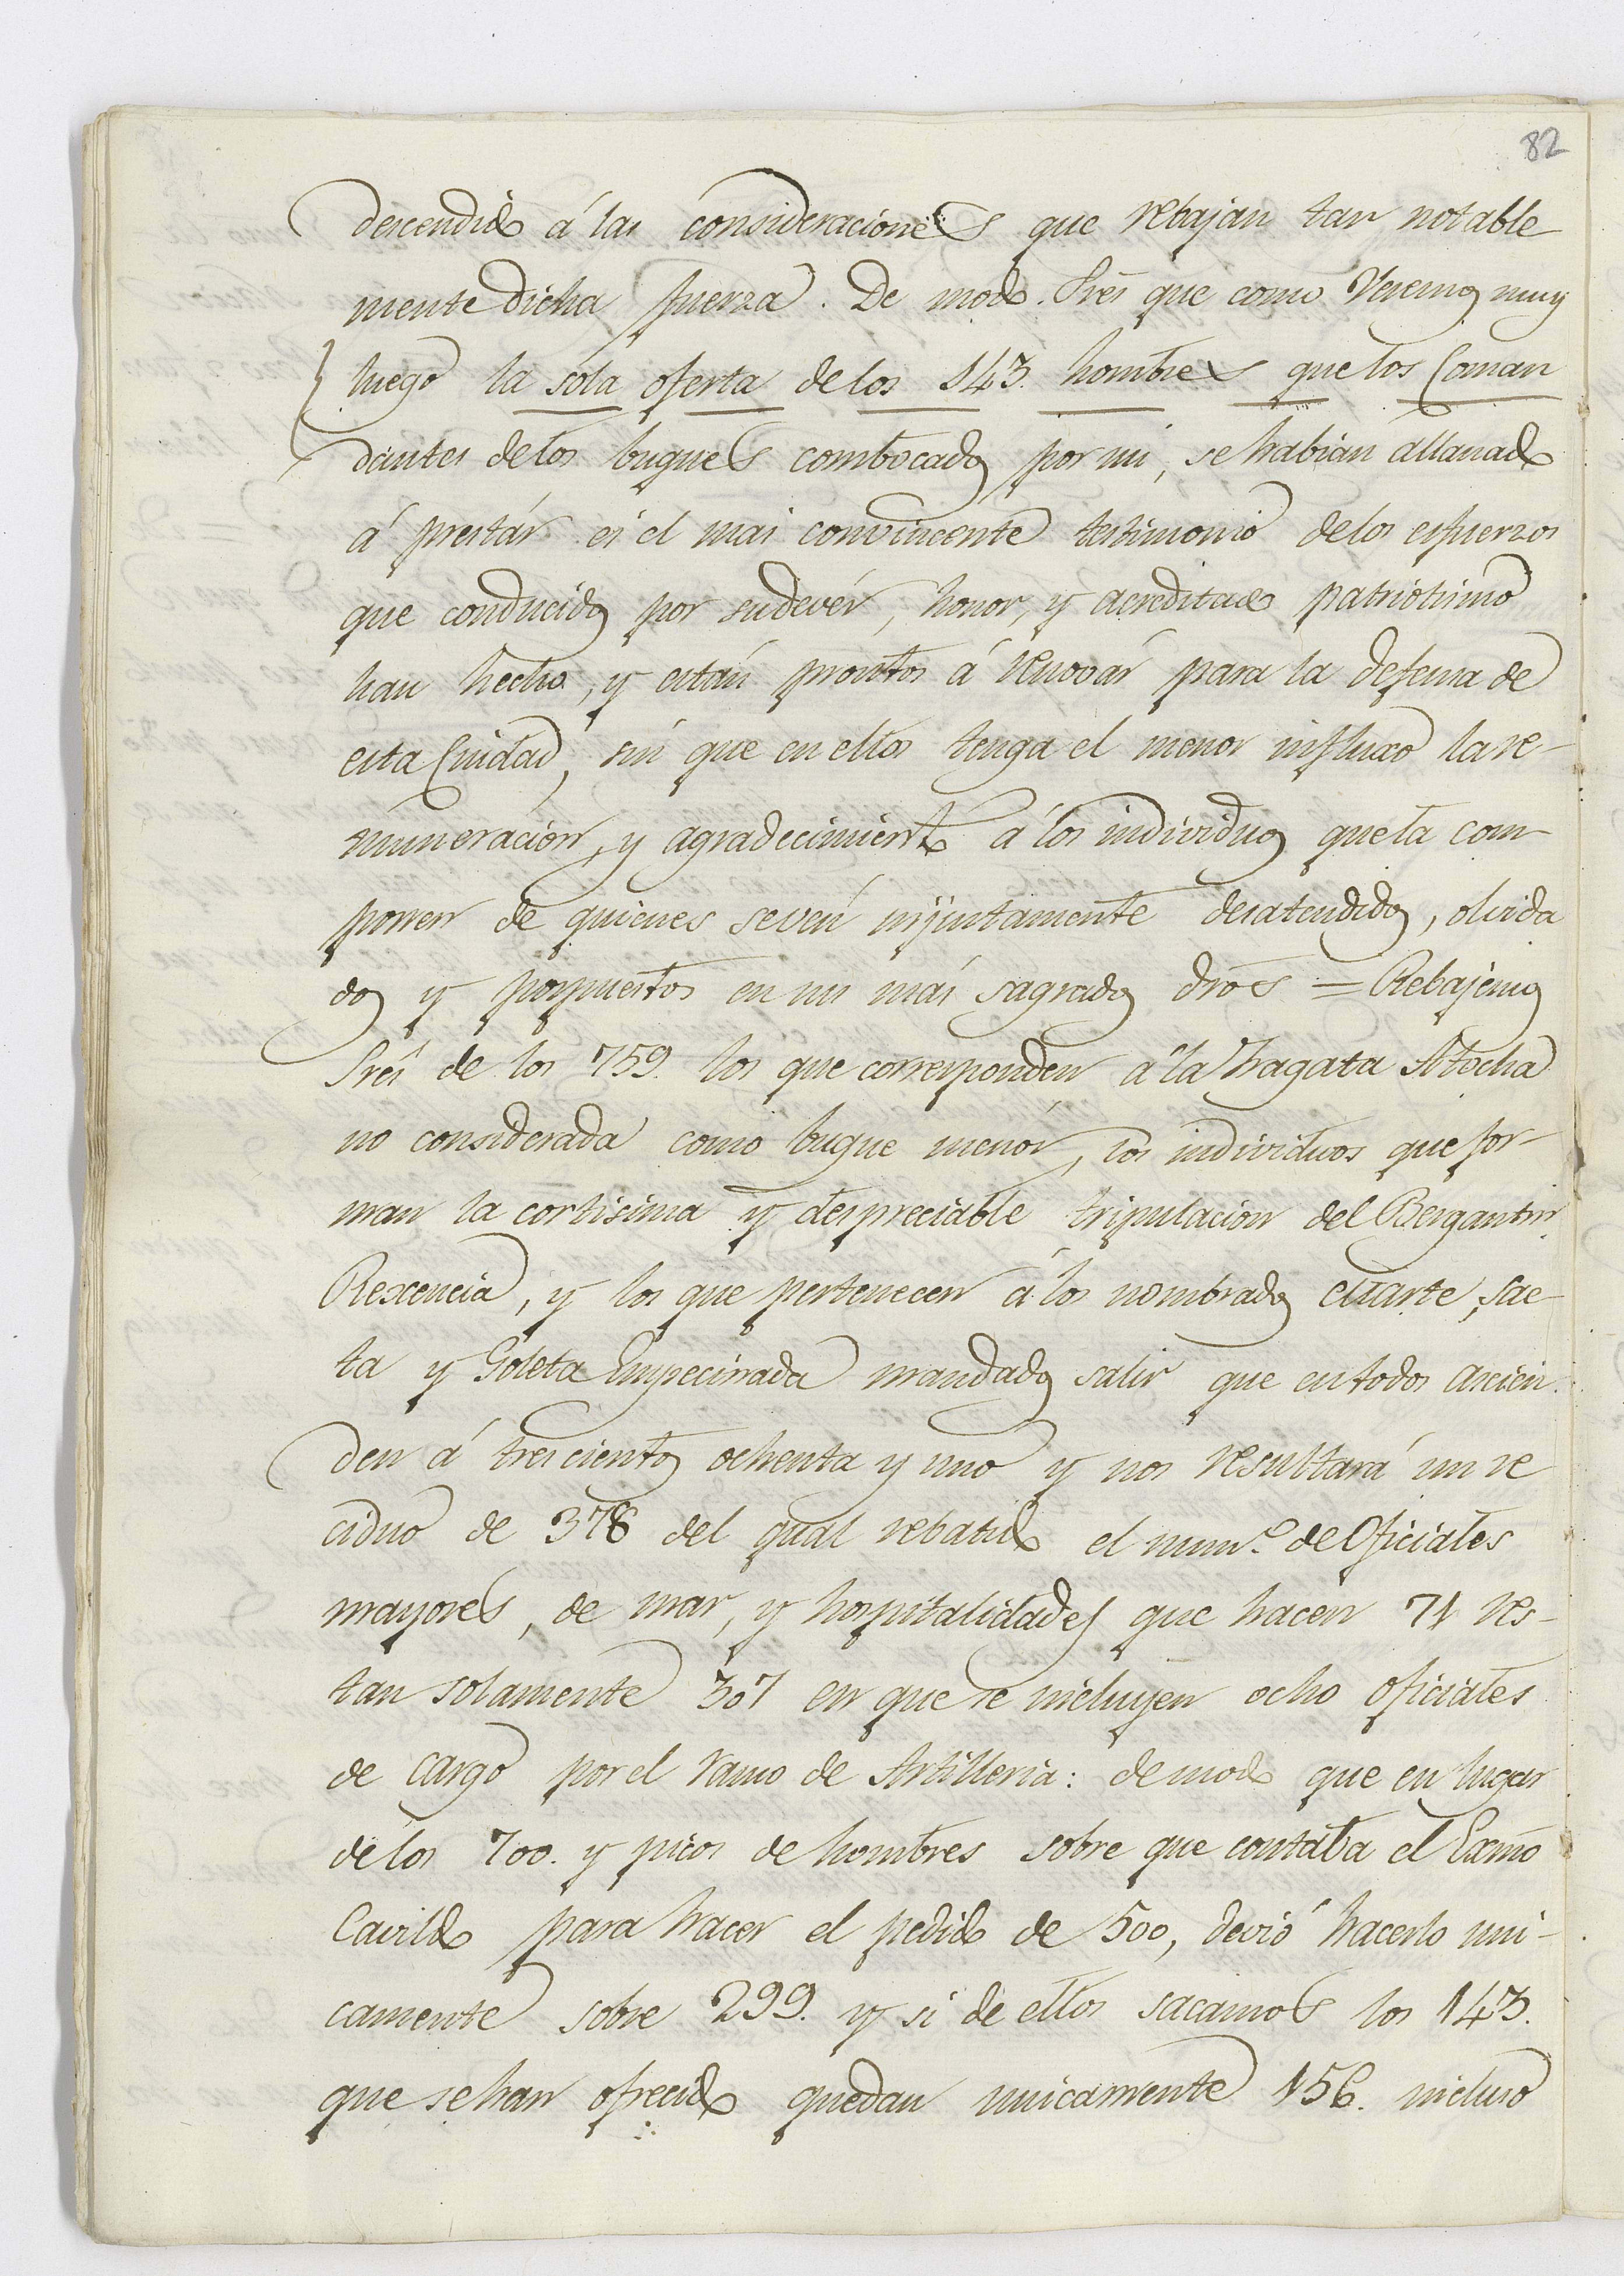 82
descendido á las consideraciones que rebajan tan notable
mente dicha fuerza. De modo Srēs que como veremos muy
luego la sola oferta de los 143. hombres que los Coman
dantes delos buques combocados por mi, se habian allanado
á prestár es el mas convincente testimonio delos esfuerzos
que conducidos por sudevér, honor, y acreditado patriotismo
han hecho, y están prontos á renovár para la defensa de
esta Ciudad, sin que en ellos tenga el menor influxo la re-
muneración, y agradecimiento á los individuos quela com-
ponen de quienes seven injustamente desatendidos, olvida
dos y pospuestos en sus más sagrados drōs = Rebajemos
Srēs de los 759. los que corresponden a la Fragata Atocha
no considerada como buque menór, los individuos que for-
man la cortisima y despreciable tripulacion del Bergantin
Rexencia, y los que pertenecen á los nombrados Marte, Sae-
ta y Goleta Empecinada mandados salir que entodos ascien
den á trescientos ochenta y uno y nos resultará un re
ciduo de 378 del qual rebatido el numº. de Oficiales
mayores, de mar, y hospitalidades que hacen 71 res-
tan solamente 307 en que se incluyen ocho oficiales
de cargo por el ramo de Artilleria: demodo que en lugar
delos 700. y picos de hombres sobre que contaba el Exmō
Cavildo para hacer el pedido de 500, devió hacerlo uni-
camente sobre 299. y si de ellos sacamos los 143.
que sehan ofrecido quedan unicamente 156. incluso